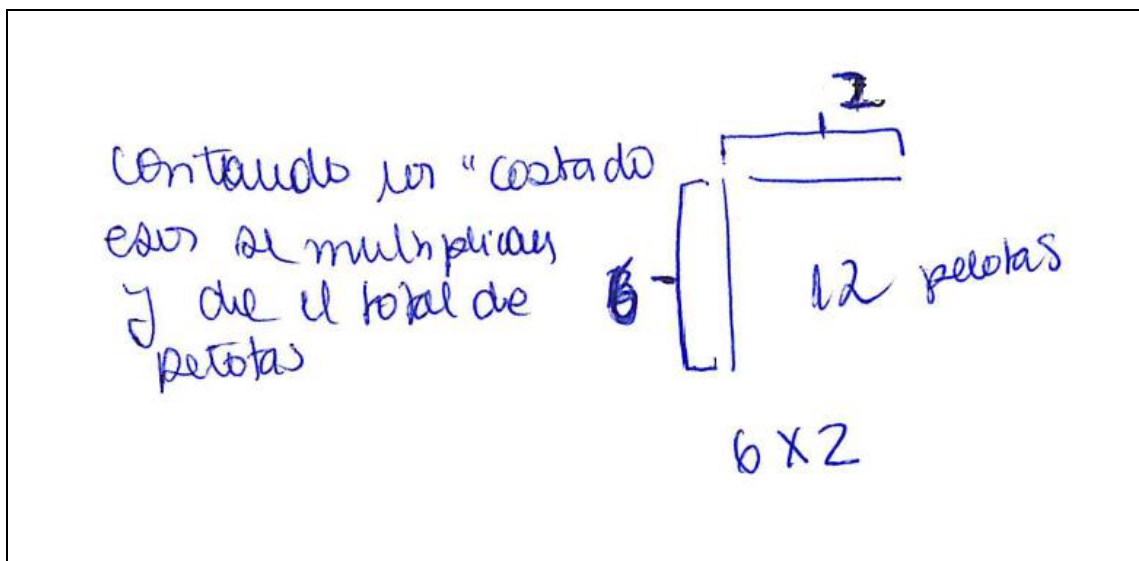 contando los "costado
esos se multiplican
y die el total de
pelotas
2
6
12 pelotas
6 X 2